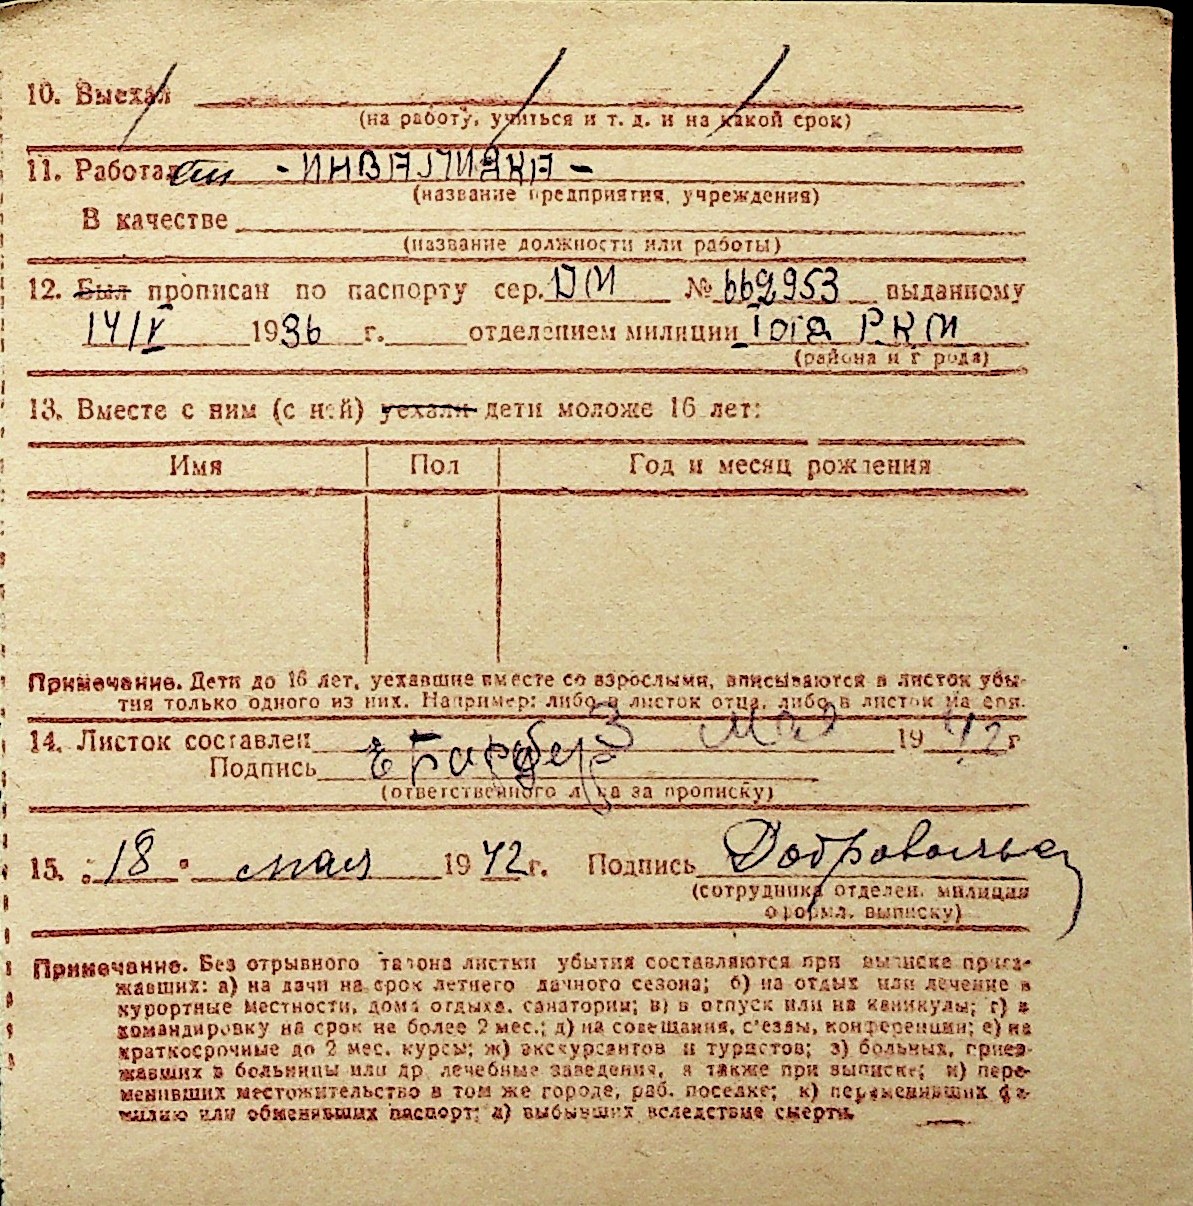 10. Выехал
(на работу, учиться и т. д. и на какой срок)
11. Работал - ИНВАЛИДКА -
(название предприятия, учреждения)
В качестве
(название должности или работы)
12. Был прописан по паспорту сер. ДМ № 662953 выданному
14/V 1936 г. отделением милиции РКМ
(района и города)
13. Вместе с ним (с ней) уехали дети моложе 16 лет:
Имя Пол Год и месяц рождения
Примечание. Дети до 16 лет, уехавшие вместе со взрослыми, вписываются в листок убы-
тия только одного из них. Например: либо в листок отца, либо в листок матери.
14. Листок составлен мая 1942 г
Подпись
(ответственного лица за прописку)
15. „18" мая 1942 г. Подпись
(сотрудника отделен. милиции
оформл. выписку)
Примечание. Без отрывного талона листки убытия составляются при выписке приез-
жавших: а) на дачи на срок летнего дачного сезона; б) на отдых или лечение в
курортные местности, дома отдыха, санатории; в) в отпуск или на каникулы; г) в
командировку на срок не более 2 мес.; д) на совещания, с'езды, конференции; е) на
краткосрочные до 2 мес. курсы; ж) экскурсантов и туристов; з) больных, приез-
жавших в больницы или др. лечебные заведения, а также при выписке; и) пере-
менивших местожительство в том же городе, раб. поселке; к) переменивших фа-
милию или обменявших паспорт; л) выбывших вследствие смерти.